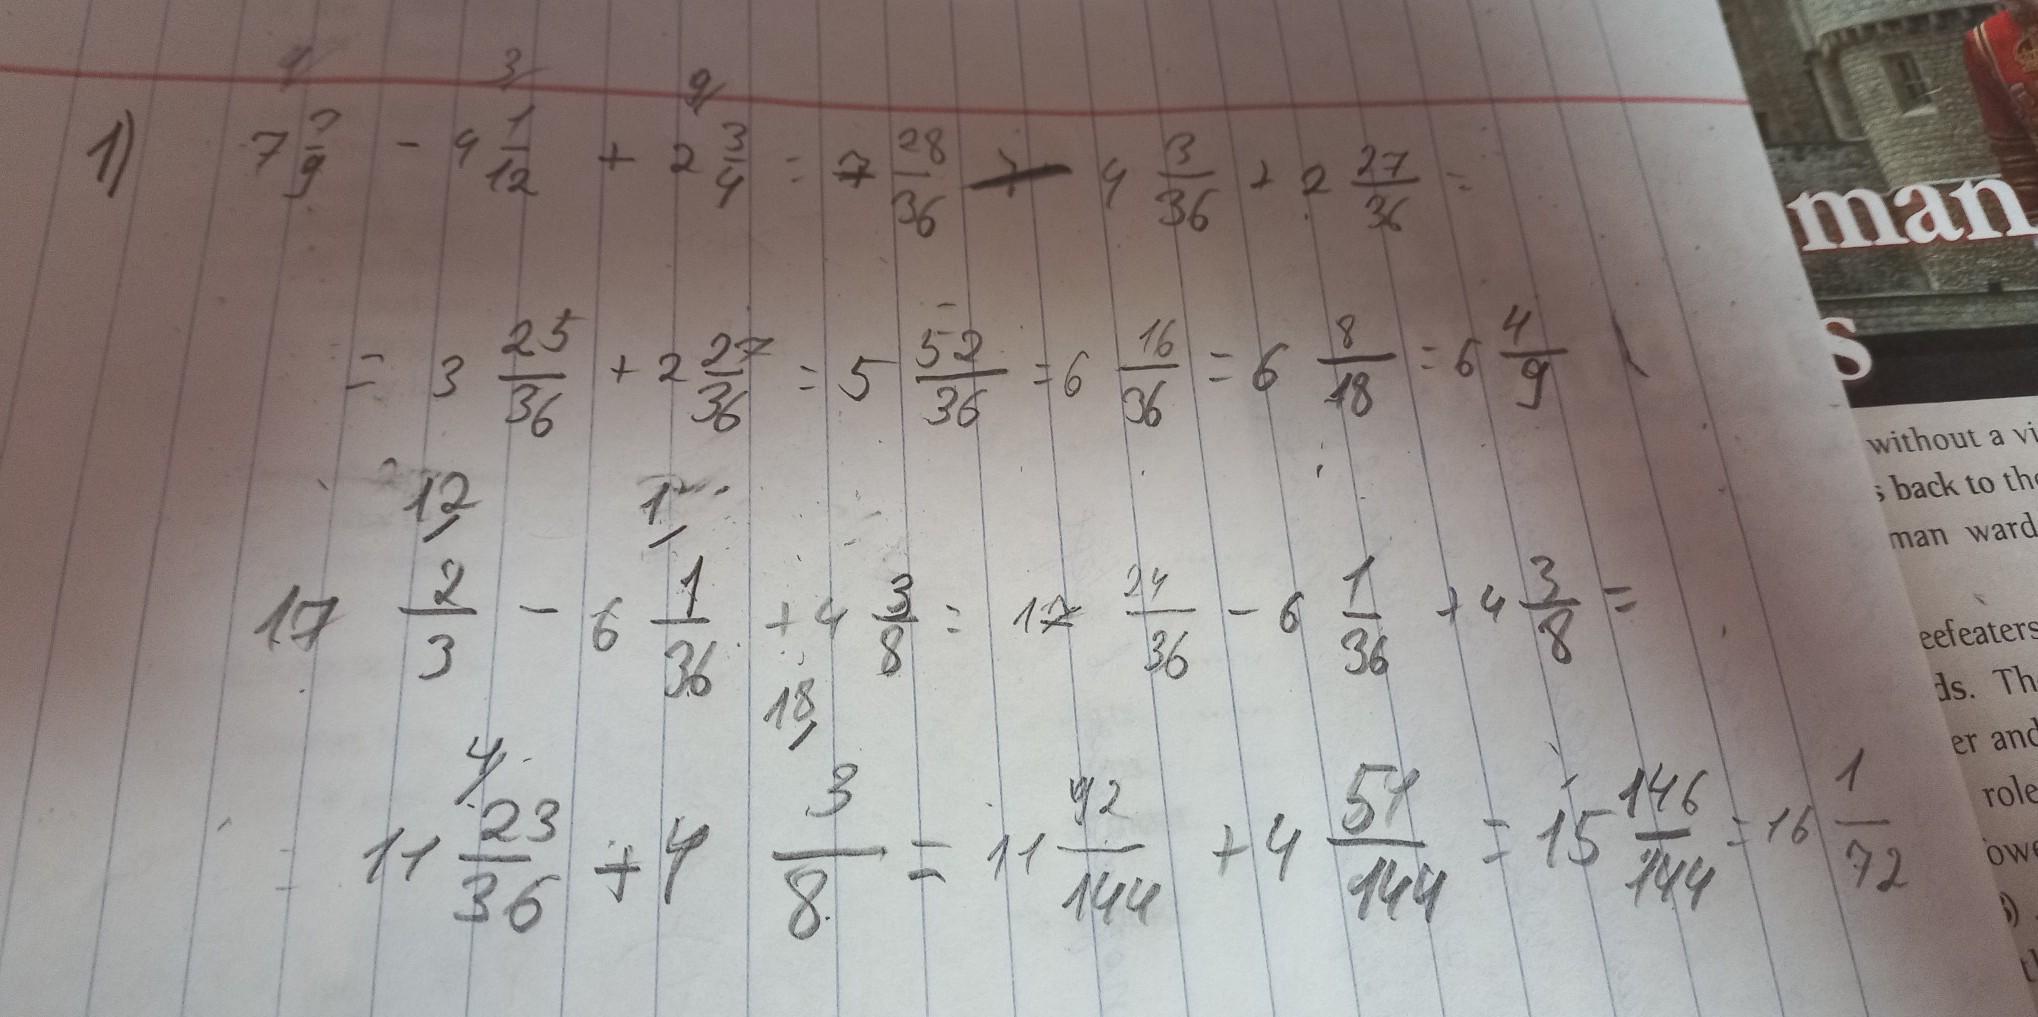 4/ 3/ 9/
1) 7 7/9 - 4 1/12 + 2 3/4 = 7 28/36 - 4 3/36 + 2 27/36 =
= 3 25/36 + 2 27/36 = 5 52/36 = 6 16/36 = 6 8/18 = 6 4/9
12, 1,
17 2/3 - 6 1/36 + 4 3/8 = 17 24/36 - 6 1/36 + 4 3/8 =
4/ 18,
= 11 23/36 + 4 3/8 = 11 92/144 + 4 54/144 = 15 146/144 = 16 1/72
man
s
without a vi
s back to the
man ward
eefeaters
ds. Th
er and
role
owe